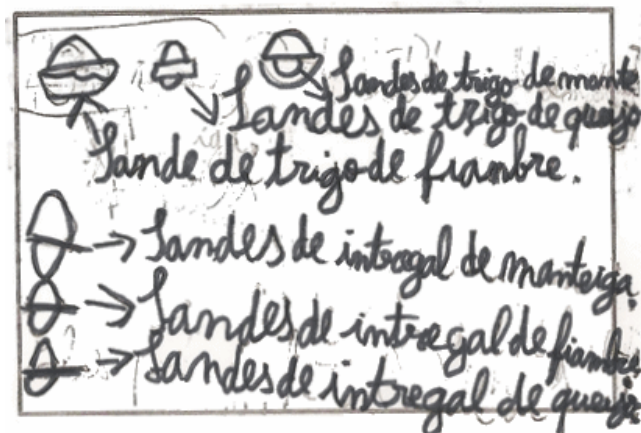 Sandes de trigo de mante
Sandes de trigo de queijo
Sande de trigo de fiambre.
Sandes de intregal de manteiga.
Sandes de intregal de fiambre.
Sandes de intregal de queijo.